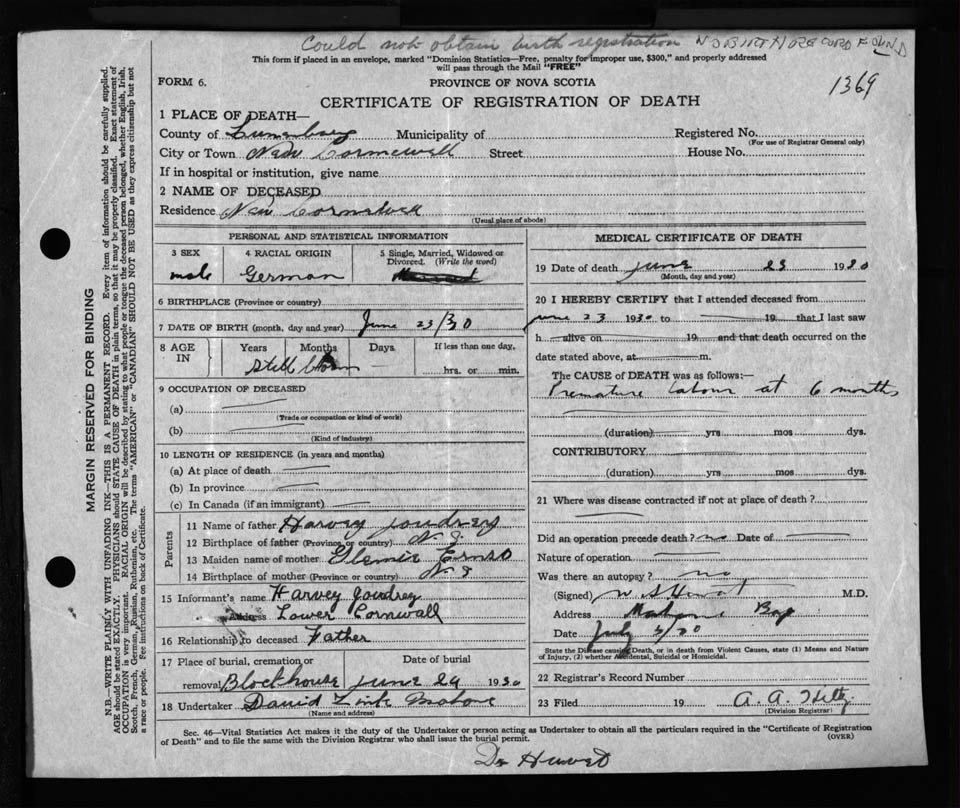 Could not obtain birth registration NO BIRTH RECORD FOUND
This form if placed in an envelope, marked "Dominion Statistics—Free, penalty for improper use, $300," and properly addressed
will pass through the Mail "FREE"
FORM 6.
PROVINCE OF NOVA SCOTIA
1369
CERTIFICATE OF REGISTRATION OF DEATH
1 PLACE OF DEATH—
County of Lunenburg Municipality of Registered No.
(For use of Registrar General only)
City or Town New Cornwall Street House No.
If in hospital or institution, give name
2 NAME OF DECEASED
Residence New
(Usual place of abode)
PERSONAL AND STATISTICAL INFORMATION
3 SEX male
4 RACIAL ORIGIN German
5 Single, Married, Widowed or Divorced. (Write the word)
6 BIRTHPLACE (Province or country)
7 DATE OF BIRTH (month, day and year) June 23/30
8 AGE IN Years Months Days If less than one day,
Still born hrs. or min.
9 OCCUPATION OF DECEASED
(a)
(Trade or occupation or kind of work)
(b)
(Kind of Industry)
10 LENGTH OF RESIDENCE (in years and months)
(a) At place of death
(b) In province
(c) In Canada (if an immigrant)
Parents
11 Name of father Harvey Joudrey
12 Birthplace of father (Province or country) N.S
13 Maiden name of mother Ernst
14 Birthplace of mother (Province or country) N S
15 Informant's name Harvey Joudrey
Address Lower Cornwall
16 Relationship to deceased Father
17 Place of burial, cremation or removal Date of burial
Blockhouse June 24 1930
18 Undertaker David Mahone
(Name and address)
MEDICAL CERTIFICATE OF DEATH
19 Date of death June 23 1930
(Month, day and year)
20 I HEREBY CERTIFY that I attended deceased from
June 23 1930 to 19 that I last saw
h alive on 19 and that death occurred on the
date stated above, at m.
The CAUSE of DEATH was as follows:—
Premature labour at 6 months
(duration) yrs mos dys.
CONTRIBUTORY
(duration) yrs mos dys.
21 Where was disease contracted if not at place of death?
Did an operation precede death? no Date of
Nature of operation
Was there an autopsy? no
(Signed) M.D.
Address Mahone Bay
Date July 30
State the Disease causing Death, or in death from Violent Causes, state (1) Means and Nature
of Injury, (2) whether Accidental, Suicidal or Homicidal.
22 Registrar's Record Number
23 Filed 19 A. A. Hiltz
(Division Registrar)
Sec. 46—Vital Statistics Act makes it the duty of the Undertaker or person acting as Undertaker to obtain all the particulars required in the "Certificate of Registration
of Death" and to file the same with the Division Registrar who shall issue the burial permit.
(OVER)
Dr
MARGIN RESERVED FOR BINDING
N.B.—WRITE PLAINLY WITH UNFADING INK—THIS IS A PERMANENT RECORD. Every item of information should be carefully supplied.
AGE should be stated EXACTLY. PHYSICIANS should STATE CAUSE OF DEATH in plain terms, so that it may be properly classified. Exact statement of
OCCUPATION is very important. RACIAL ORIGIN will be described by stating to what people or tongue the deceased person belonged, whether English, Irish,
Scotch, French, German, Russian, Ruthenian, etc. The terms "AMERICAN" or "CANADIAN" SHOULD NOT BE USED as they express citizenship but not
a race or people. Fee instructions on back of Certificate.